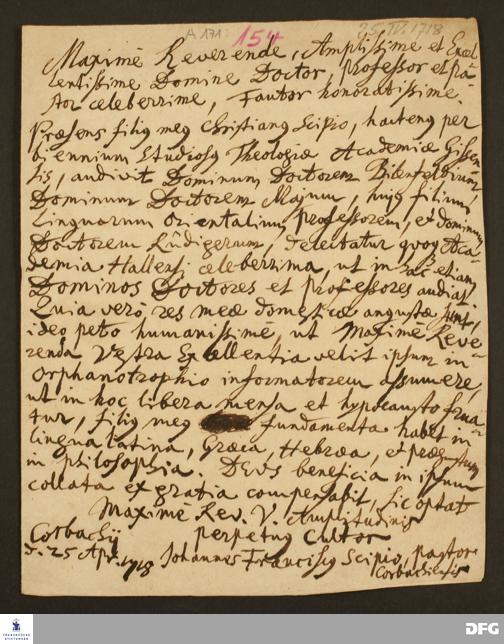 A 171:
154
25. IV. 1718
Maximè Reverende, Amplissime et Excel
lentissime Domine Doctor, Professor et pa-
stor celeberrime, Fautor honoratissime.
Præsens filiꝰ meꝰ Christianꝰ Scipio, hactenꝰ per
biennium Studiosꝰ Theologiæ Academiæ Gissen
sis, audivit Dominum Doctorem Bilefeldium,
Dominum Doctorem Majum, hujꝰ filium
Linguarum orientalium professorem, et dominum
Doctorem Rûdigerum, delectatur quoqꝫ Aca-
demia Hallensi celeberrima, ut in hac etiam
Dominos Doctores et professores audiat.
Quia verò res meæ domesticæ angustæ sunt,
ideo peto humanissimè, ut Maximè Reve-
renda Vestra Excellentia velit ipsum in
Orphanotrophio informatorem assumere,
ut in hoc libera mensa et hypocausto frua-
tur, filiꝰ meꝰ fundamenta habet in
lingua latina, Græca, Hebræa, et
in philosophia. DEUS beneficia in ipsum
collata ex gratia compensabit, sic optat
Maximè Rev. V. Amplitudinis
perpetuꝰ Cultor
Corbachij
d. 25 Apr. 1718 Johannes Franciscꝰ Scipio, pastor
Corbachiensis
FRANCKESCHE
STIFTUNGEN
DFG